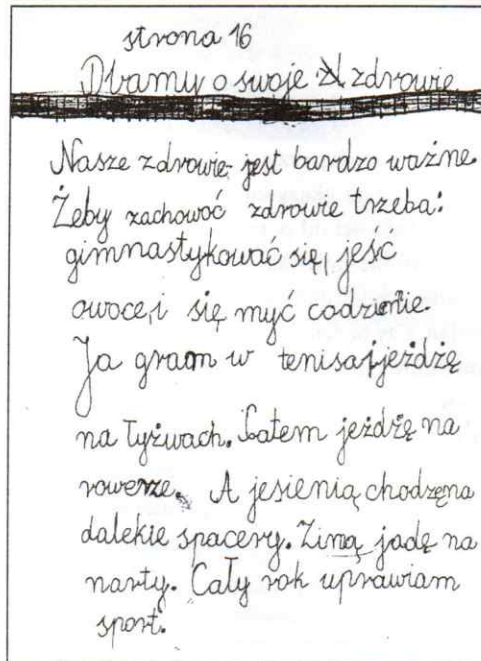 strona 16
Dbamy o swoje zdrowie
Nasze zdrowie jest bardzo ważne.
Żeby zachowoć zdrowie trzeba:
gimnastykować się, jeść
owoce, i się myć codzienie.
Ja gram w tenisa, jeżdżę
na łyżwach. Latem jeżdżę na
rowerze. A jesienią chodzę na
dalekie spacery. Zimą jadę na
narty. Cały rok uprawiam
sport.